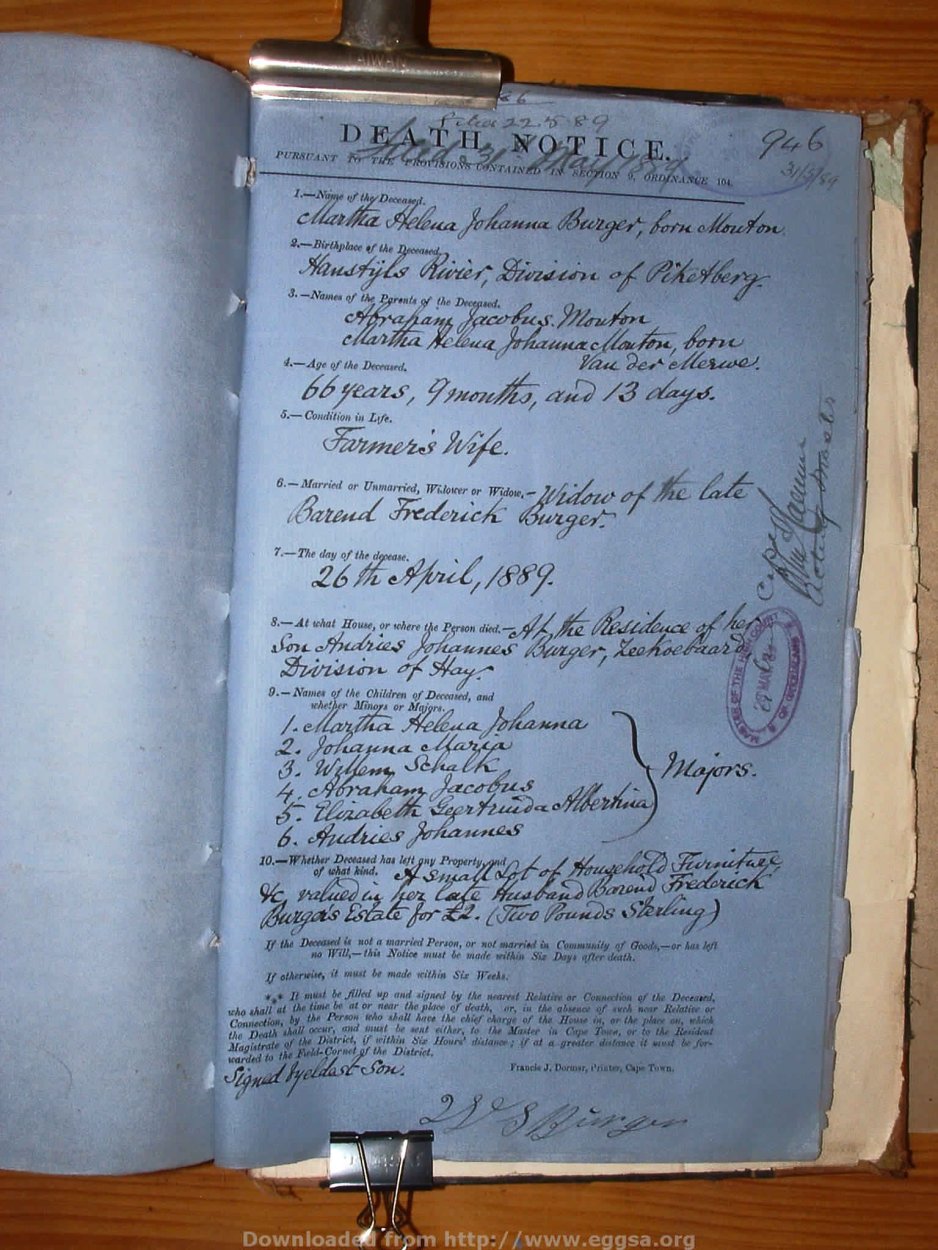 TAIWAN
Filed 22.5.89
DEATH NOTICE.
946
31/5/89
PURSUANT TO THE PROVISIONS CONTAINED IN SECTION 9, ORDINANCE 104.
1.—Name of the Deceased.
Martha Helena Johanna Burger, born Mouton
2.—Birthplace of the Deceased.
Hanstijls Rivier, Division of Piketberg.
3.—Names of the Parents of the Deceased.
Abraham Jacobus Mouton
Martha Helena Johanna Mouton, born
Van der Merwe.
4.—Age of the Deceased.
66 years, 9 months, and 13 days.
5.—Condition in Life.
Farmer's Wife.
6.—Married or Unmarried, Widower or Widow.- Widow of the late
Barend Frederick Burger.
7.—The day of the decease.
26th April, 1889.
8.—At what House, or where the Person died.- At the Residence of her
Son Andries Johannes Burger, Zeekoebaard,
Division of Hay.
9.—Names of the Children of Deceased, and
whether Minors or Majors.
1. Martha Helena Johanna
2. Johanna Maria
3. Willem Schalk
4. Abraham Jacobus
5. Elizabeth Geertruida Albertina
6. Andries Johannes
Majors.
10.—Whether Deceased has left any Property, and
of what kind. A small Lot of Household Furniture
&c, valued in her late Husband Barend Frederick
Burger's Estate for £2. (Two Pounds Sterling)
If the Deceased is not a married Person, or not married in Community of Goods,—or has left
no Will,—this Notice must be made within Six Days after death.
If otherwise, it must be made within Six Weeks.
*** It must be filled up and signed by the nearest Relative or Connection of the Deceased,
who shall at the time be at or near the place of death, or, in the absence of such near Relative or
Connection, by the Person who shall have the chief charge of the House in, or the place on, which
the Death shall occur, and must be sent either, to the Master in Cape Town, or to the Resident
Magistrate of the District, if within Six Hours' distance; if at a greater distance it must be for-
warded to the Field-Cornet of the District.
Francis J. Dormer, Printer, Cape Town.
Signed by eldest Son.
W S Burger
MASTER OF THE HIGH COURT
29 MAY 89
Downloaded from http://www.eggsa.org